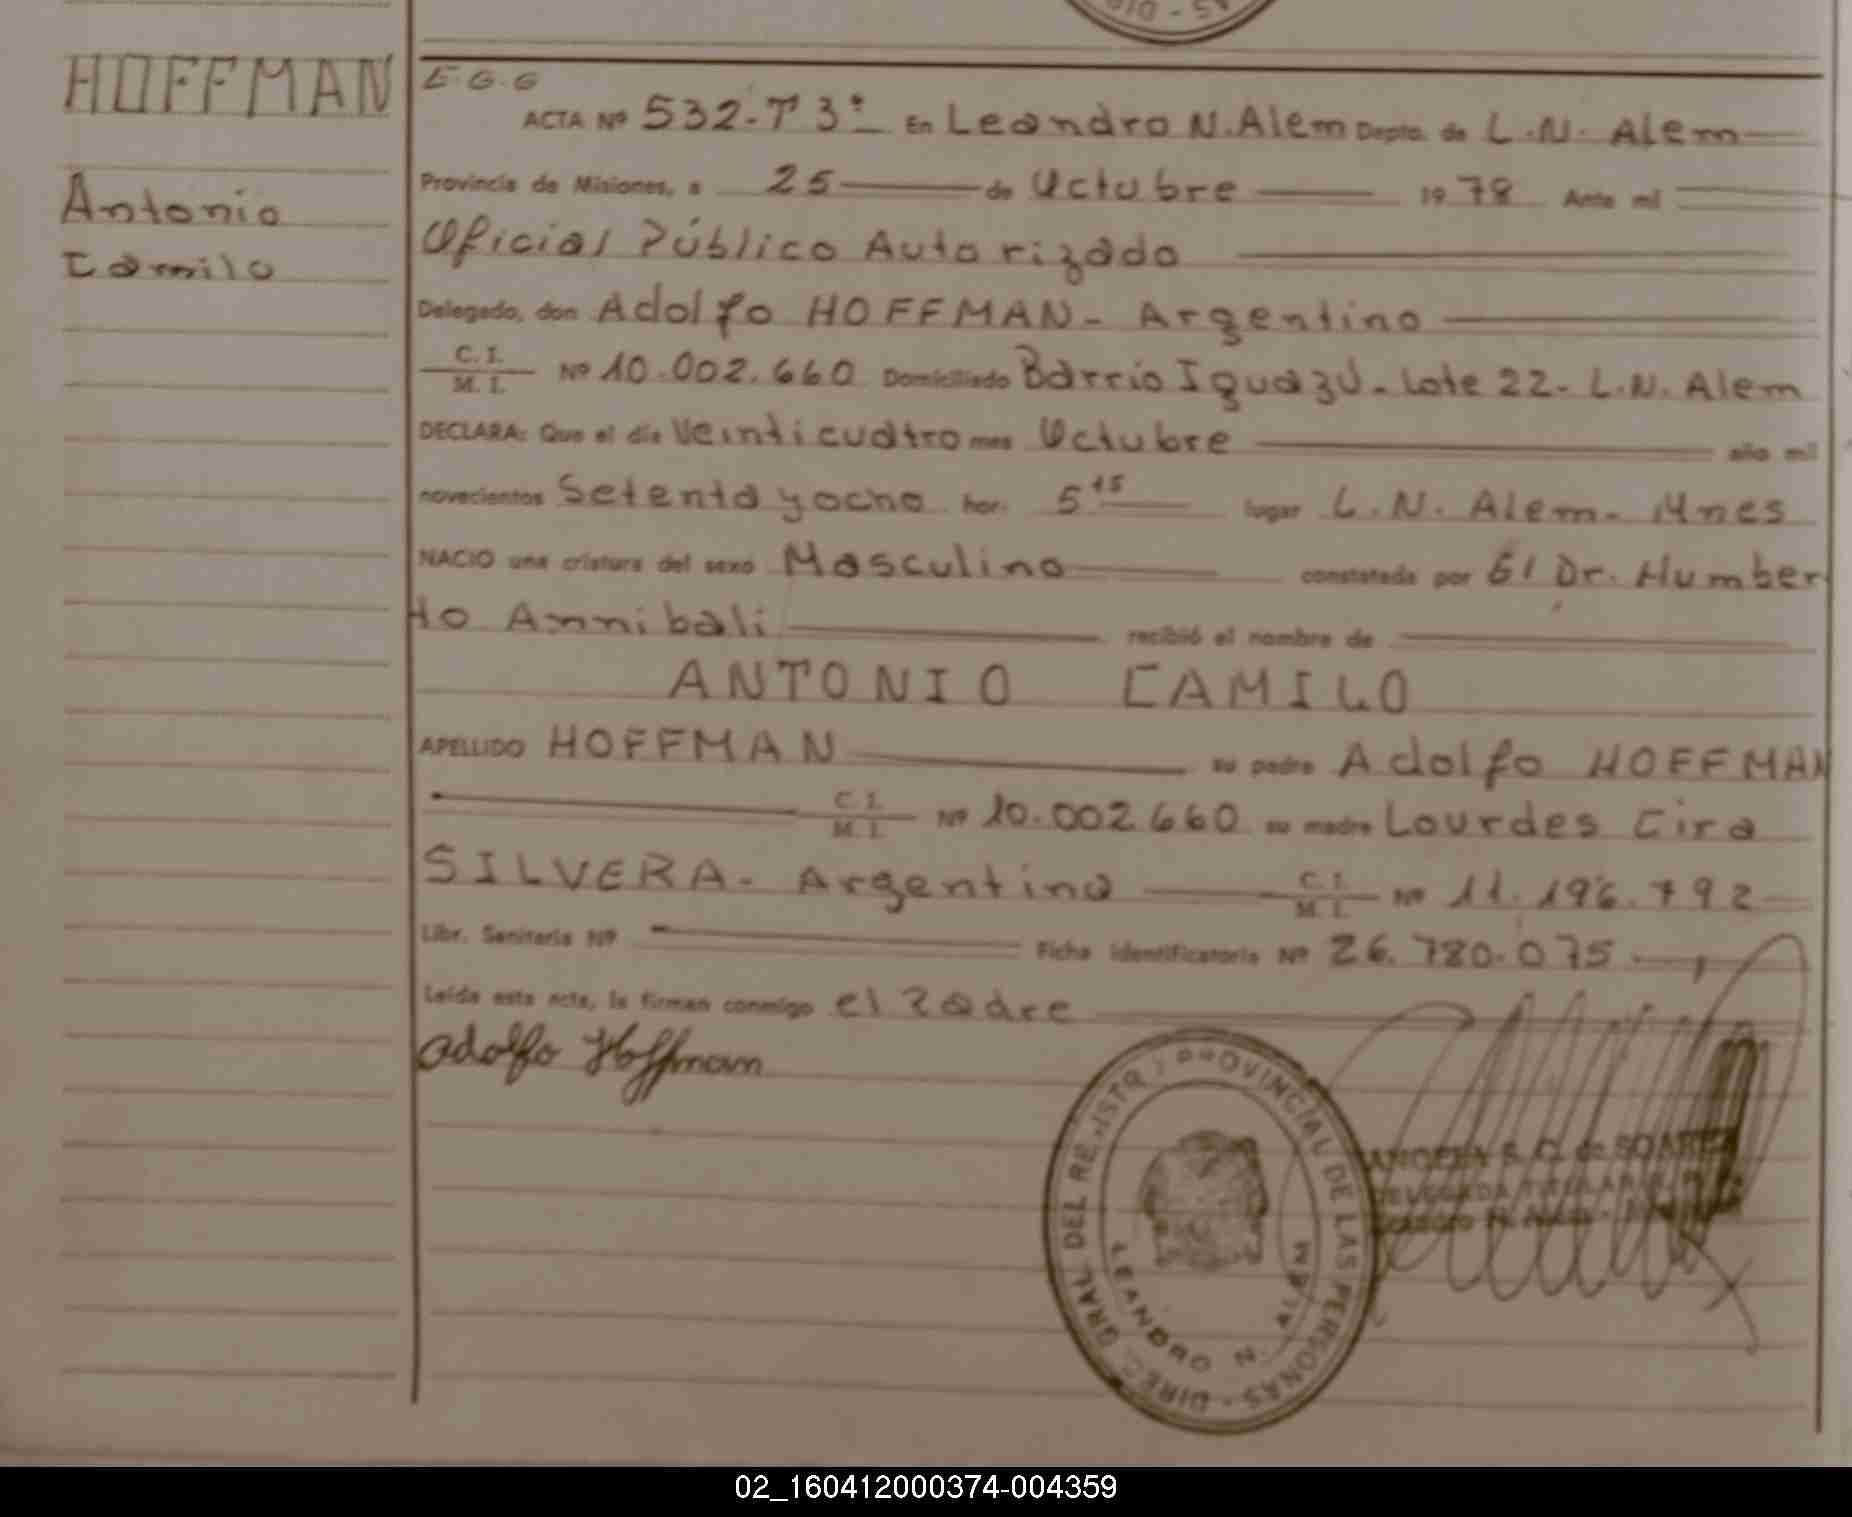 AS - DIR
HOFFMAN
Antonio
Camilo
E.G.G
ACTA Nº 532-Tº3º En Leandro N. Alem Depto. de L.N. Alem
Provincia de Misiones, a 25 de Octubre 1978 Ante mi
Oficial Público Autorizado
Delegado, don Adolfo HOFFMAN - Argentino
C. I.
M. I. Nº 10.002.660 Domiciliado Barrio Iguazú - Lote 22 - L.N. Alem
DECLARA: Que el día Veinticuatro mes Octubre año mil
novecientos Setenta y ocho hor. 5 15 lugar L.N. Alem - Mnes
NACIO una criatura del sexo Masculino constatada por El Dr. Humber
to Annibali recibió el nombre de
ANTONIO CAMILO
APELLIDO HOFFMAN su padre Adolfo HOFFMAN
C. I.
M. I. Nº 10.002.660 su madre Lourdes Cira
SILVERA - Argentina C. I.
M. I. Nº 11.196.792
Libr. Sanitaria Nº Ficha identificatoria Nº 26.780.075
Leída esta acta, la firman conmigo el Padre
Adolfo Hoffman
DIREC. GRAL DEL REGISTRO PROVINCIAL DE LAS PERSONAS -
LEANDRO N. ALEM
S. O. de SOAREZ
DELEGADA TITULAR
Leandro N. Alem -
02_160412000374-004359